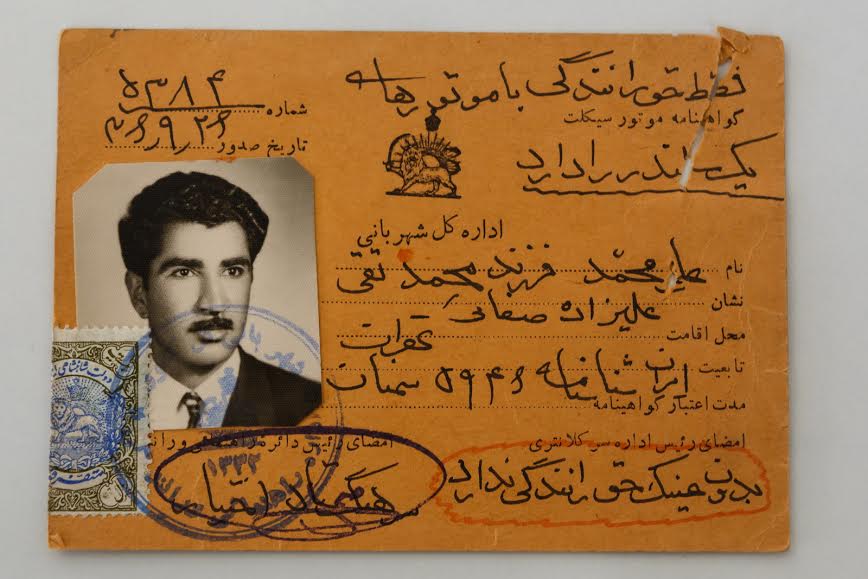 فقط حق رانندگی با موتورهای
گواهینامه موتور سیکلت
یک سلندر را دارد
شماره ۵۳۸۴
تاریخ صدور ۳۶/۹/۲۶
اداره کل شهربانی
نام علیمحمد فرزند محمد تقی
نشان علیزاده
محل اقامت تهران
تابعیت ایران شناسنامه ۵۹۴۶ سمنان
مدت اعتبار گواهینامه
امضای رئیس اداره سر کلانتری
امضای رئیس دائره راهنمائی و
بدون عینک حق رانندگی ندارد
سرهنگ
۱۳۳۲